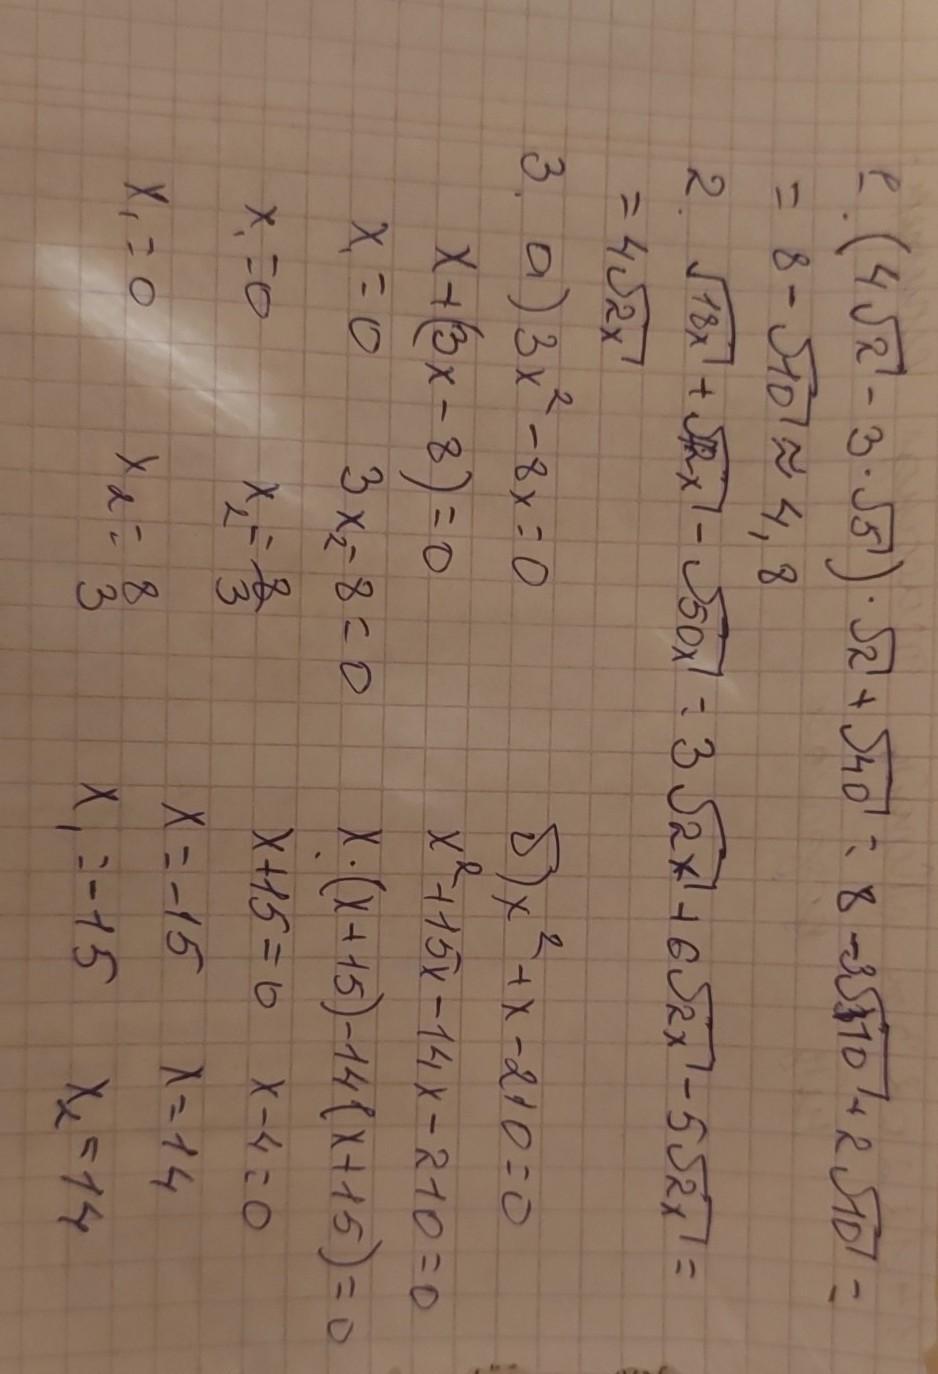 1. (4√2 - 3·√5)·√2 + √40 = 8 - 3√10 + 2√10 =
= 8 - √10 ≈ 4,8
2. √18x + √72x - √50x = 3√2x + 6√2x - 5√2x =
= 4√2x
3. а) 3x² - 8x = 0
x+(3x - 8) = 0
x₁ = 0 3x₂ = 8 = 0
x₁ = 0 x₂ = 8/3
x₁ = 0 x₂ = 8/3
б) x² + x - 210 = 0
x² + 15x - 14x - 210 = 0
x·(x + 15) - 14(x + 15) = 0
x + 15 = 0 x - 4 = 0
x = -15 x = 14
x₁ = -15 x₂ = 14